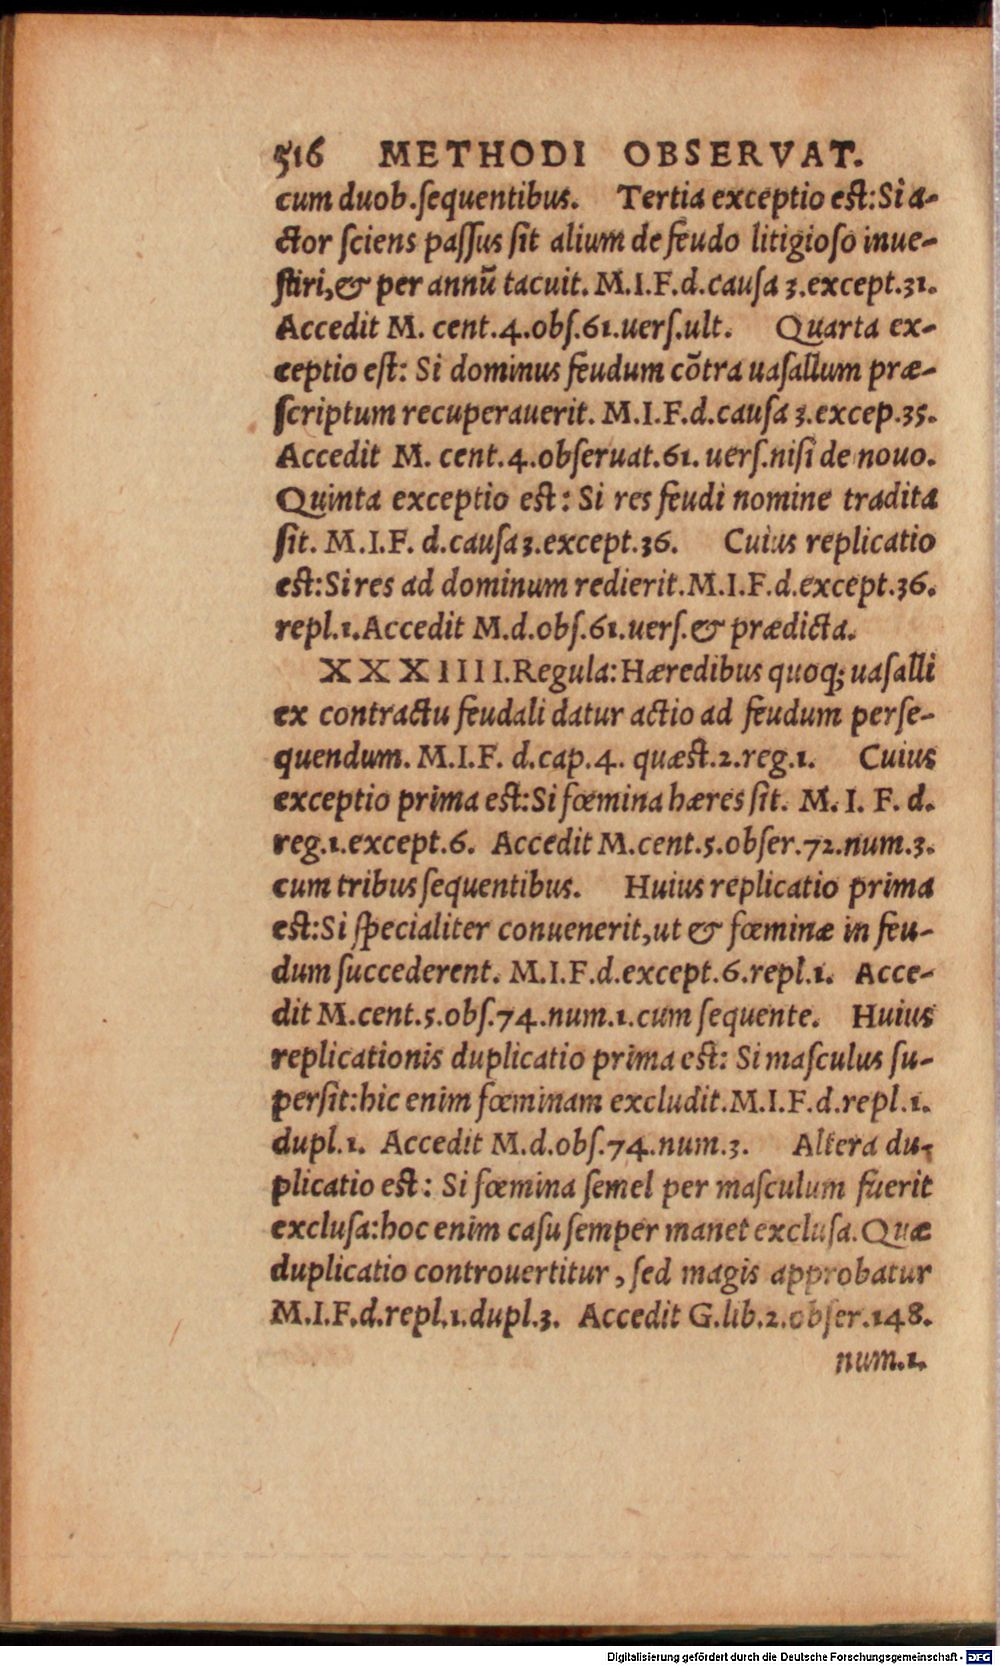 516 METHODI OBSERVAT.
cum duob. ſequentibus. Tertia exceptio est: Si a-
ctor ſciens paſſus ſit alium de feudo litigioſo inue-
ſtiri, & per annū tacuit. M.I.F.d.cauſa 3.except.31.
Accedit M. cent.4.obſ.61.uerſ.ult. Quarta ex-
ceptio eſt: Si dominus feudum cōtra uaſallum præ-
ſcriptum recuperauerit. M.I.F.d.cauſa 3.excep.35.
Accedit M. cent.4.obſeruat.61. uerſ.niſi de nouo.
Quinta exceptio eſt: Si res feudi nomine tradita
ſit. M.I.F. d.cauſa 3.except.36. Cuius replicatio
eſt: Si res ad dominum redierit. M.I.F.d.except.36.
repl.1. Accedit M.d.obſ.61.uerſ.& prædicta.
XXXIIII. Regula: Hæredibus quoq; uaſalli
ex contractu feudali datur actio ad feudum perſe-
quendum. M.I.F. d.cap.4. quæſt.2.reg.1. Cuius
exceptio prima eſt: Si fœmina hæres ſit. M. I. F. d.
reg.1.except.6. Accedit M.cent.5.obſer.72.num.3.
cum tribus ſequentibus. Huius replicatio prima
eſt: Si ſpecialiter conuenerit, ut & fœminæ in feu-
dum ſuccederent. M.I.F.d.except.6.repl.1. Acce-
dit M.cent.5.obſ.74.num.1.cum ſequente. Huius
replicationis duplicatio prima eſt: Si maſculus ſu-
perſit: hic enim fœminam excludit. M.I.F.d.repl.1.
dupl.1. Accedit M.d.obſ.74.num.3. Altera du-
plicatio eſt: Si fœmina ſemel per maſculum fuerit
excluſa: hoc enim caſu ſemper manet excluſa. Quæ
duplicatio controuertitur, ſed magis approbatur
M.I.F.d.repl.1.dupl.3. Accedit G.lib.2.obſer.148.
num.1.
Digitalisierung gefördert durch die Deutsche Forschungsgemeinschaft - DFG